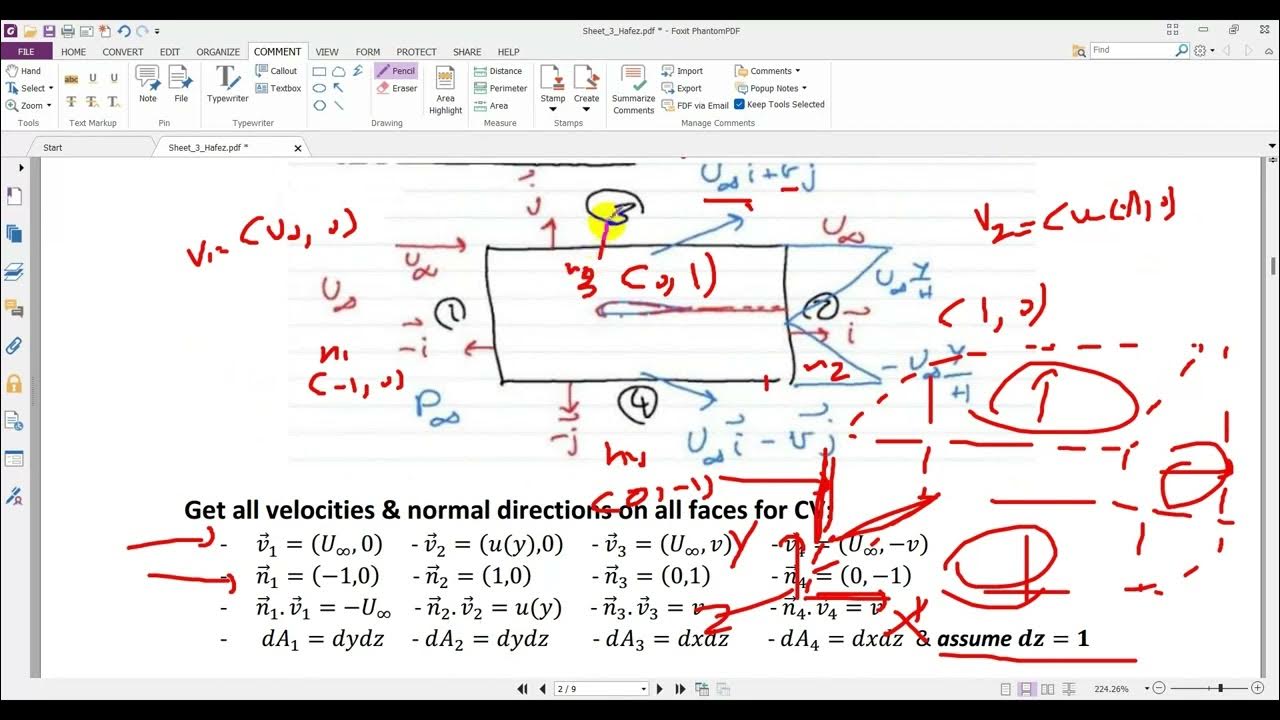 Sheet_3_Hafez.pdf * - Foxit PhantomPDF
FILE HOME CONVERT EDIT ORGANIZE COMMENT VIEW FORM PROTECT SHARE HELP Find
Hand Select Zoom Tools
abc U U T T T Text Markup
Note File Pin
Typewriter Callout Textbox Typewriter
Pencil Eraser Drawing
Area Highlight Distance Perimeter Area Measure
Stamp Create Stamps
Summarize Comments Import Export FDF via Email Comments Popup Notes Keep Tools Selected Manage Comments
Start Sheet_3_Hafez.pdf *
U∞ i + v j
j
3
V₁ = (U∞, 0)
V₂ = (u(y), 0)
U∞
U∞
n3 (0, 1)
U∞ y/H
U∞
1
2
(1, 0)
-i
i
n1
(-1, 0)
n2
-U∞ y/H
P∞
4
-j
U∞ i - v j
(0, -1)
Get all velocities & normal directions on all faces for CV:
- v⃗₁ = (U∞, 0) - v⃗₂ = (u(y),0) - v⃗₃ = (U∞, v) - v⃗₄ = (U∞, −v)
- n⃗₁ = (−1,0) - n⃗₂ = (1,0) - n⃗₃ = (0,1) - n⃗₄ = (0, −1)
- n⃗₁. v⃗₁ = −U∞ - n⃗₂. v⃗₂ = u(y) - n⃗₃. v⃗₃ = v - n⃗₄. v⃗₄ = v
- dA₁ = dydz - dA₂ = dydz - dA₃ = dxdz - dA₄ = dxdz & assume dz = 1
Y
Z
X
2 / 9
224.26%